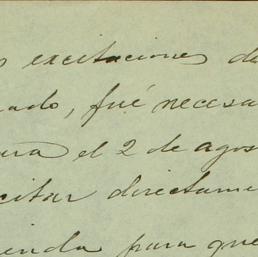 s excitaciones de
ado, fué necesa
ara el 2 de agos
citar directame
ienda para que